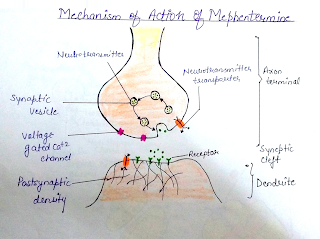 Mechanism of Action of Mephentermine
Neurotransmitter
Neurotransmitter
transporter
Axon
terminal
Synaptic
Vesicle
Voltage
gated Ca+2
channel
Receptor
Synaptic
cleft
Postsynaptic
density
Dendrite